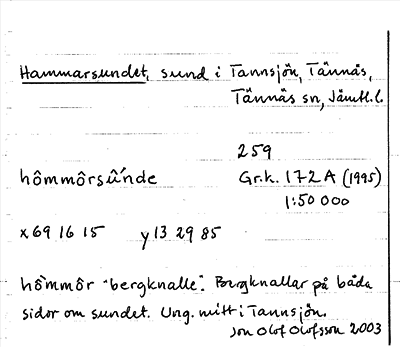 Hammarsundet, sund i Tannsjön, Tännäs,
Tännäs sn, Jämtl. l.
259
hômmôrsûnde Gr.k. 172A (1995)
1:50 000
x 69 16 15 y 13 29 85
hômmôr "bergknalle". Bergknallar på båda
sidor om sundet. Ung. mitt i Tannsjön.
Jon Olof Olofsson 2003